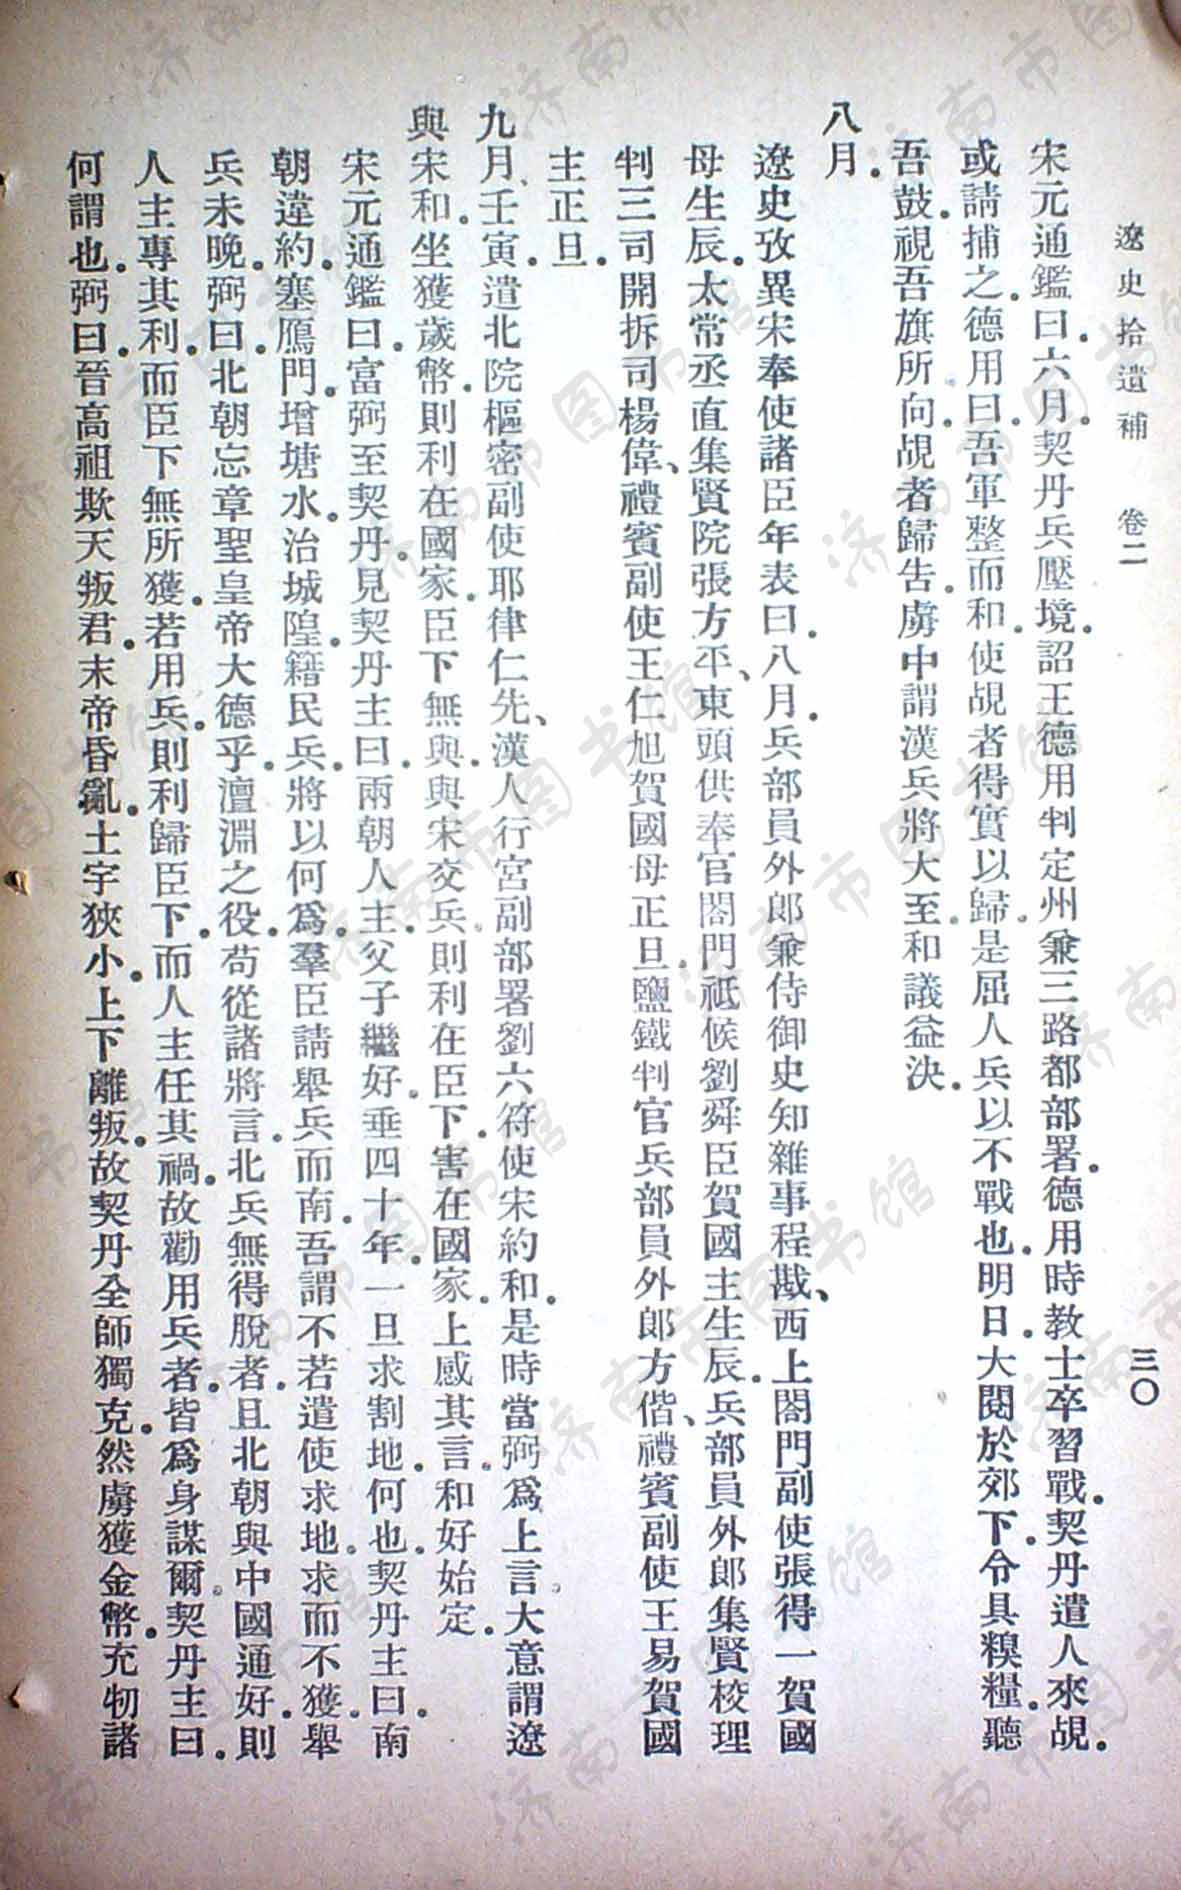 遼史拾遺補　卷二　三〇
宋元通鑑曰。六月。契丹兵壓境。詔王德用判定州兼三路都部署。德用時教士卒習戰。契丹遣人來覘。
或請捕之。德用曰。吾軍整而和。使覘者得實以歸。是屈人兵以不戰也。明日。大閱於郊。下令具糗糧。聽
吾鼓。視吾旗所向。覘者歸告。虜中謂漢兵將大至。和議益決。
八月。
遼史攷異宋奉使諸臣年表曰。八月。兵部員外郎兼侍御史知雜事程戡、西上閤門副使張得一賀國
母生辰。太常丞直集賢院張方平、東頭供奉官閤門祗候劉舜臣賀國主生辰。兵部員外郎集賢校理
判三司開拆司楊偉、禮賓副使王仁旭賀國母正旦。鹽鐵判官兵部員外郎方偕、禮賓副使王易賀國
主正旦。
九月。壬寅。遣北院樞密副使耶律仁先、漢人行宮副部署劉六符使宋約和。是時當弼爲上言。大意謂遼
與宋和。坐獲歲幣。則利在國家。臣下無與。與宋交兵。則利在臣下。害在國家。上感其言。和好始定。
宋元通鑑曰。富弼至契丹。見契丹主曰。兩朝人主。父子繼好。垂四十年。一旦求割地。何也。契丹主曰。南
朝違約。塞鴈門。增塘水。治城隍。籍民兵。將以何爲。羣臣請舉兵而南。吾謂不若遣使求地。求而不獲。舉
兵未晚。弼曰。北朝忘章聖皇帝大德乎。澶淵之役。苟從諸將言。北兵無得脫者。且北朝與中國通好。則
人主專其利。而臣下無所獲。若用兵。則利歸臣下。而人主任其禍。故勸用兵者。皆爲身謀爾。契丹主曰。
何謂也。弼曰。晉高祖欺天叛君。末帝昏亂。土宇狹小。上下離叛。故契丹全師獨克。然虜獲金幣。充牣諸